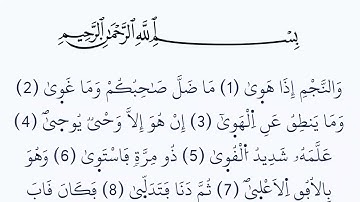 بِسْمِ اللَّهِ الرَّحْمَٰنِ الرَّحِيمِ
وَالنَّجْمِ إِذَا هَوىٰ (1) مَا ضَلَّ صَٰحِبُكُمْ وَمَا غَوىٰ (2)
وَمَا يَنطِقُ عَنِ اِ۬لْهَوىٰٓ (3) إِنْ هُوَ إِلَّا وَحْىٌ يُوحىٰ (4)
عَلَّمَهُۥ شَدِيدُ اُ۬لْقُوىٰ (5) ذُو مِرَّةٍ فَاسْتَوىٰ (6) وَهُوَ
بِالُافُقِ اِ۬لَاعْلىٰ (7) ثُمَّ دَنَا فَتَدَلّىٰ (8) فَكَانَ قَابَ